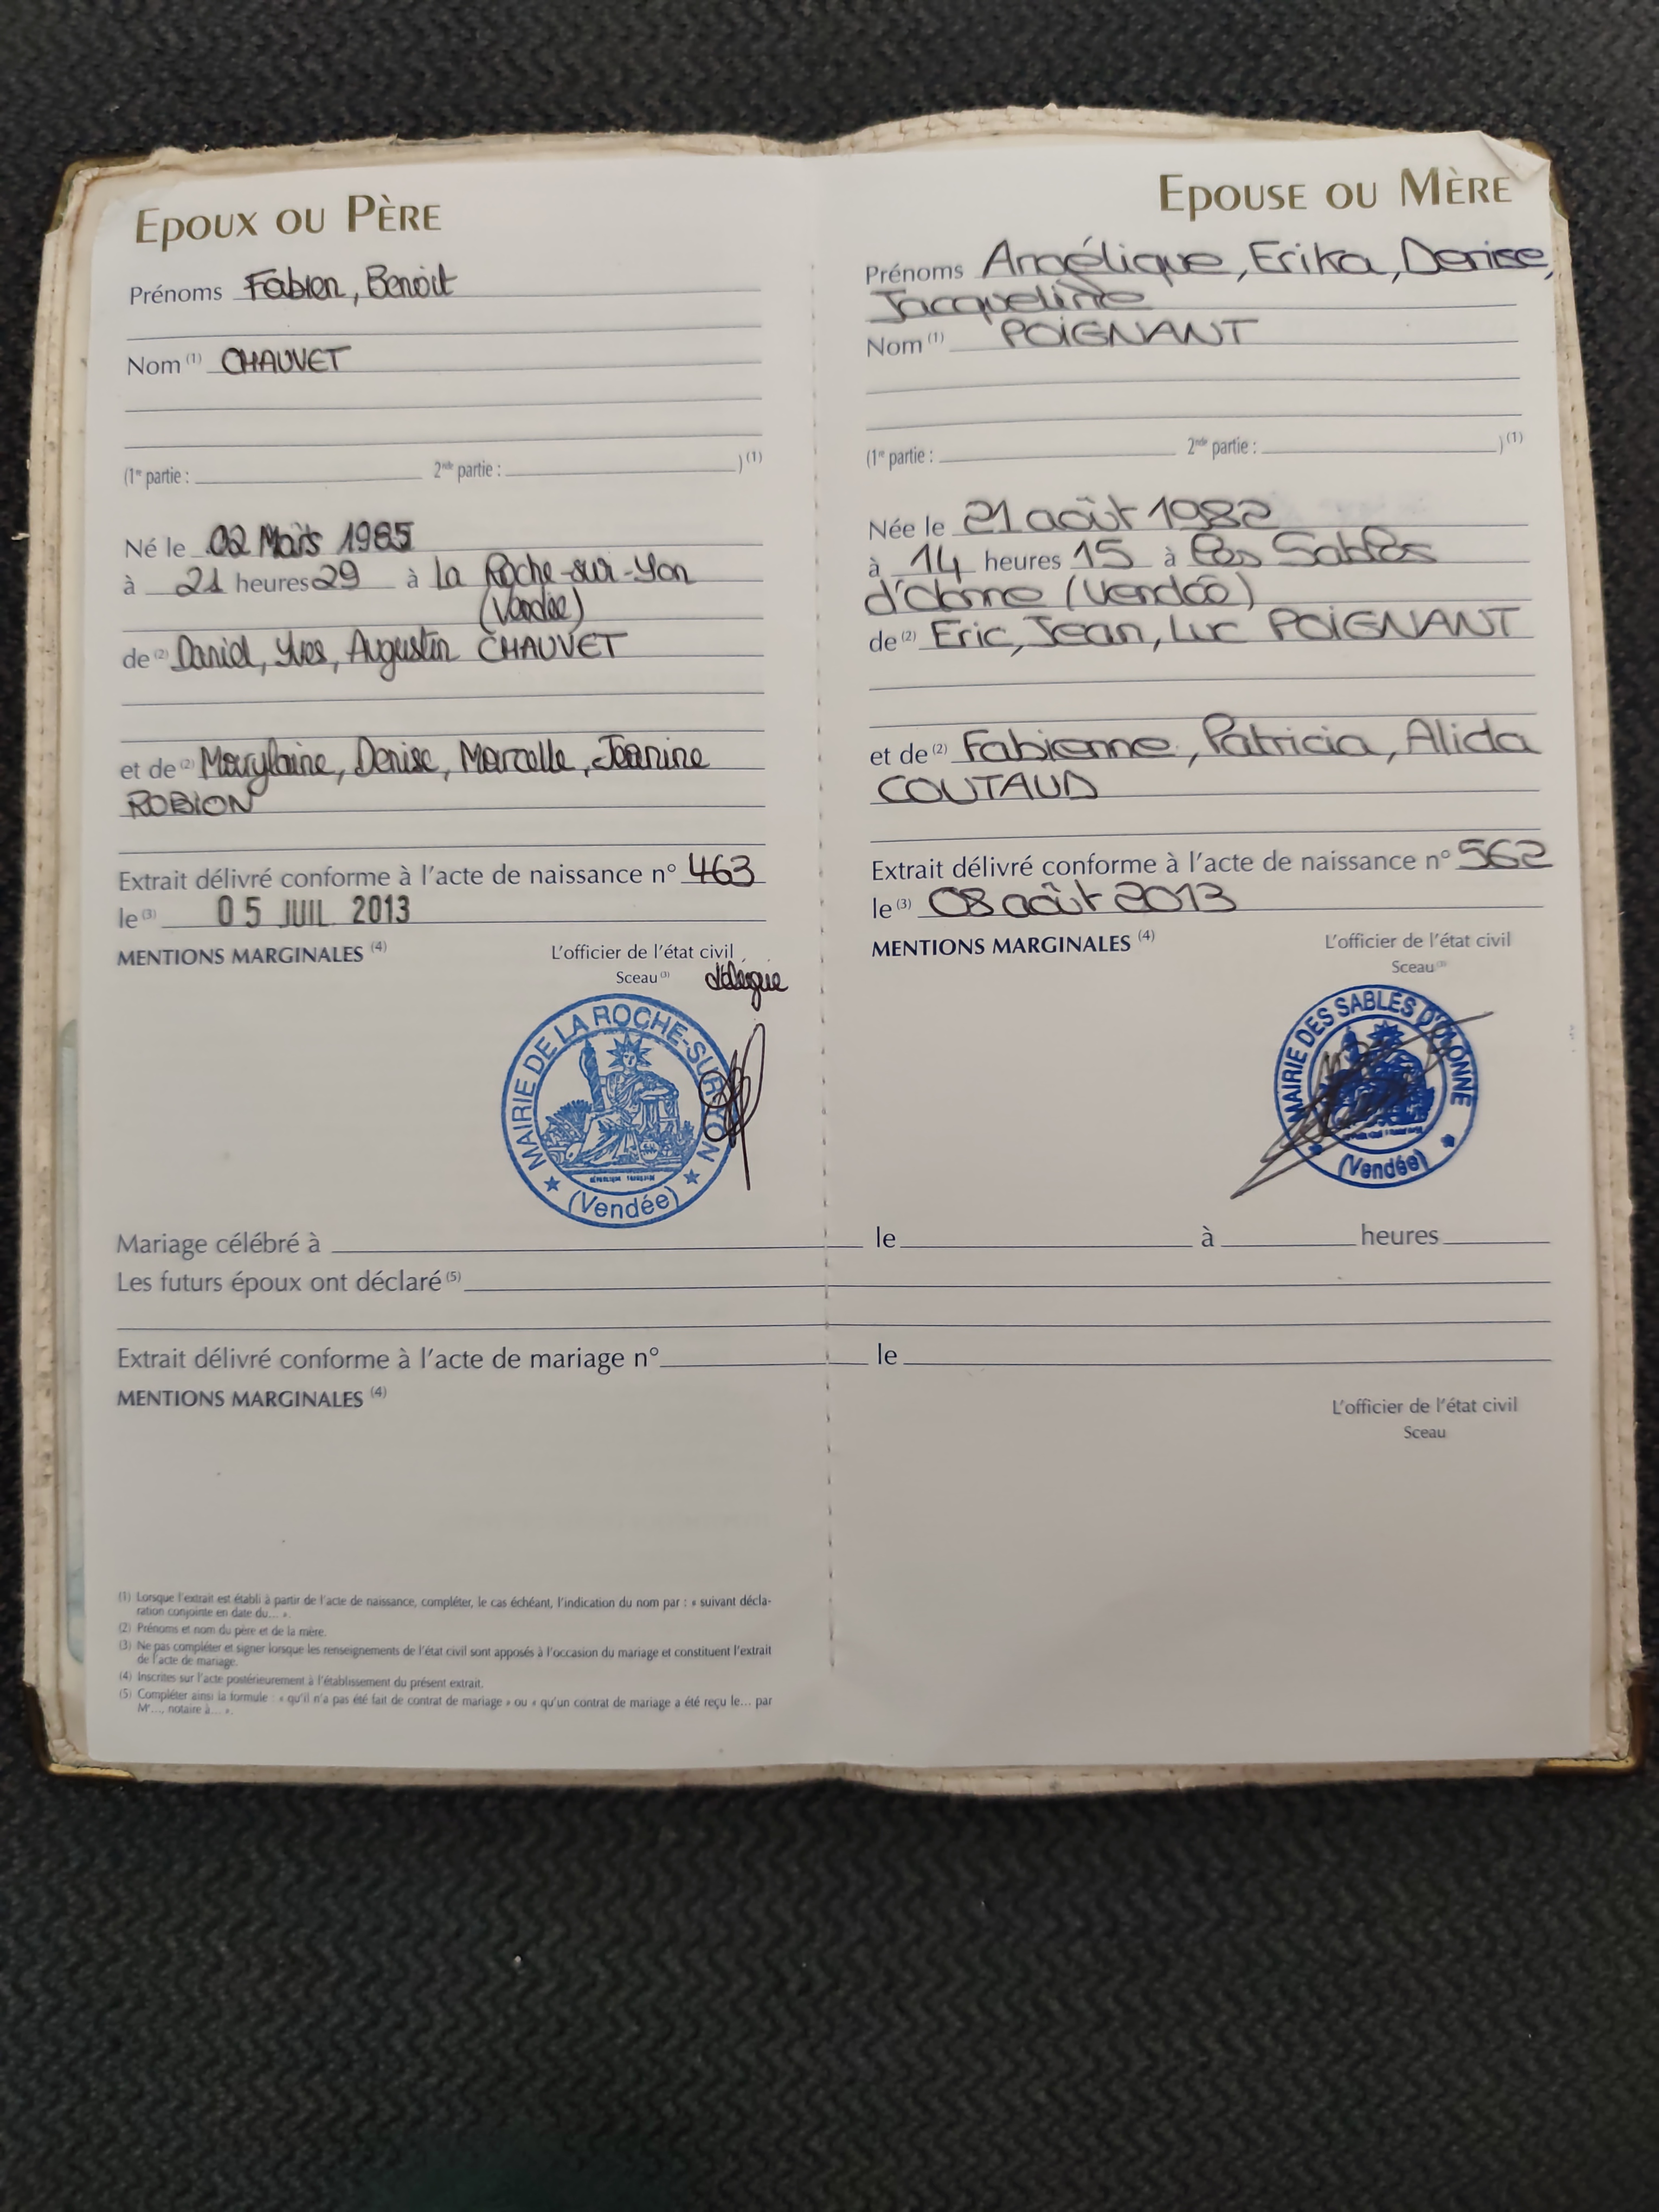 Epoux ou Père
Prénoms Fabien, Benoit
Nom (1) CHAUVET
(1re partie : 2nde partie : ) (1)
Né le 02 Mars 1985
à 21 heures 29 à La Roche-sur-Yon
(Vendée)
de (2) Daniel, Yves, Augustin CHAUVET
et de (2) Marylaine, Denise, Marcelle, Jeanine
ROBION
Extrait délivré conforme à l'acte de naissance n° 463
le (3) 05 JUIL 2013
MENTIONS MARGINALES (4)
L'officier de l'état civil
Sceau (3) délégué
MAIRIE DE LA ROCHE-SUR-YON
RÉPUBLIQUE FRANÇAISE
(Vendée)
Epouse ou Mère
Prénoms Angélique, Erika, Denise,
Jacqueline
Nom (1) POIGNANT
(1re partie : 2nde partie : ) (1)
Née le 21 août 1982
à 14 heures 15 à Les Sables
d'Olonne (Vendée)
de (2) Eric, Jean, Luc POIGNANT
et de (2) Fabienne, Patricia, Alida
COUTAUD
Extrait délivré conforme à l'acte de naissance n° 562
le (3) 08 août 2013
MENTIONS MARGINALES (4)
L'officier de l'état civil
Sceau (3)
MAIRIE DES SABLES D'OLONNE
(Vendée)
Mariage célébré à le à heures
Les futurs époux ont déclaré (5)
Extrait délivré conforme à l'acte de mariage n° le
MENTIONS MARGINALES (4)
L'officier de l'état civil
Sceau
(1) Lorsque l'extrait est établi à partir de l'acte de naissance, compléter, le cas échéant, l'indication du nom par : « suivant décla-
ration conjointe en date du... ».
(2) Prénoms et nom du père et de la mère.
(3) Ne pas compléter et signer lorsque les renseignements de l'état civil sont apposés à l'occasion du mariage et constituent l'extrait
de l'acte de mariage.
(4) Inscrites sur l'acte postérieurement à l'établissement du présent extrait.
(5) Compléter ainsi la formule : « qu'il n'a pas été fait de contrat de mariage » ou « qu'un contrat de mariage a été reçu le... par
Me..., notaire à... ».